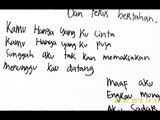 Dan terus bertahan,
Kamu Hanya yang Ku Cinta
Kamu Hanya yang Ku Puja
Sungguh aku tak kan memaksakan
Menunggu Kau datang
Maaf aku
Engkau mung
Aku Sadar